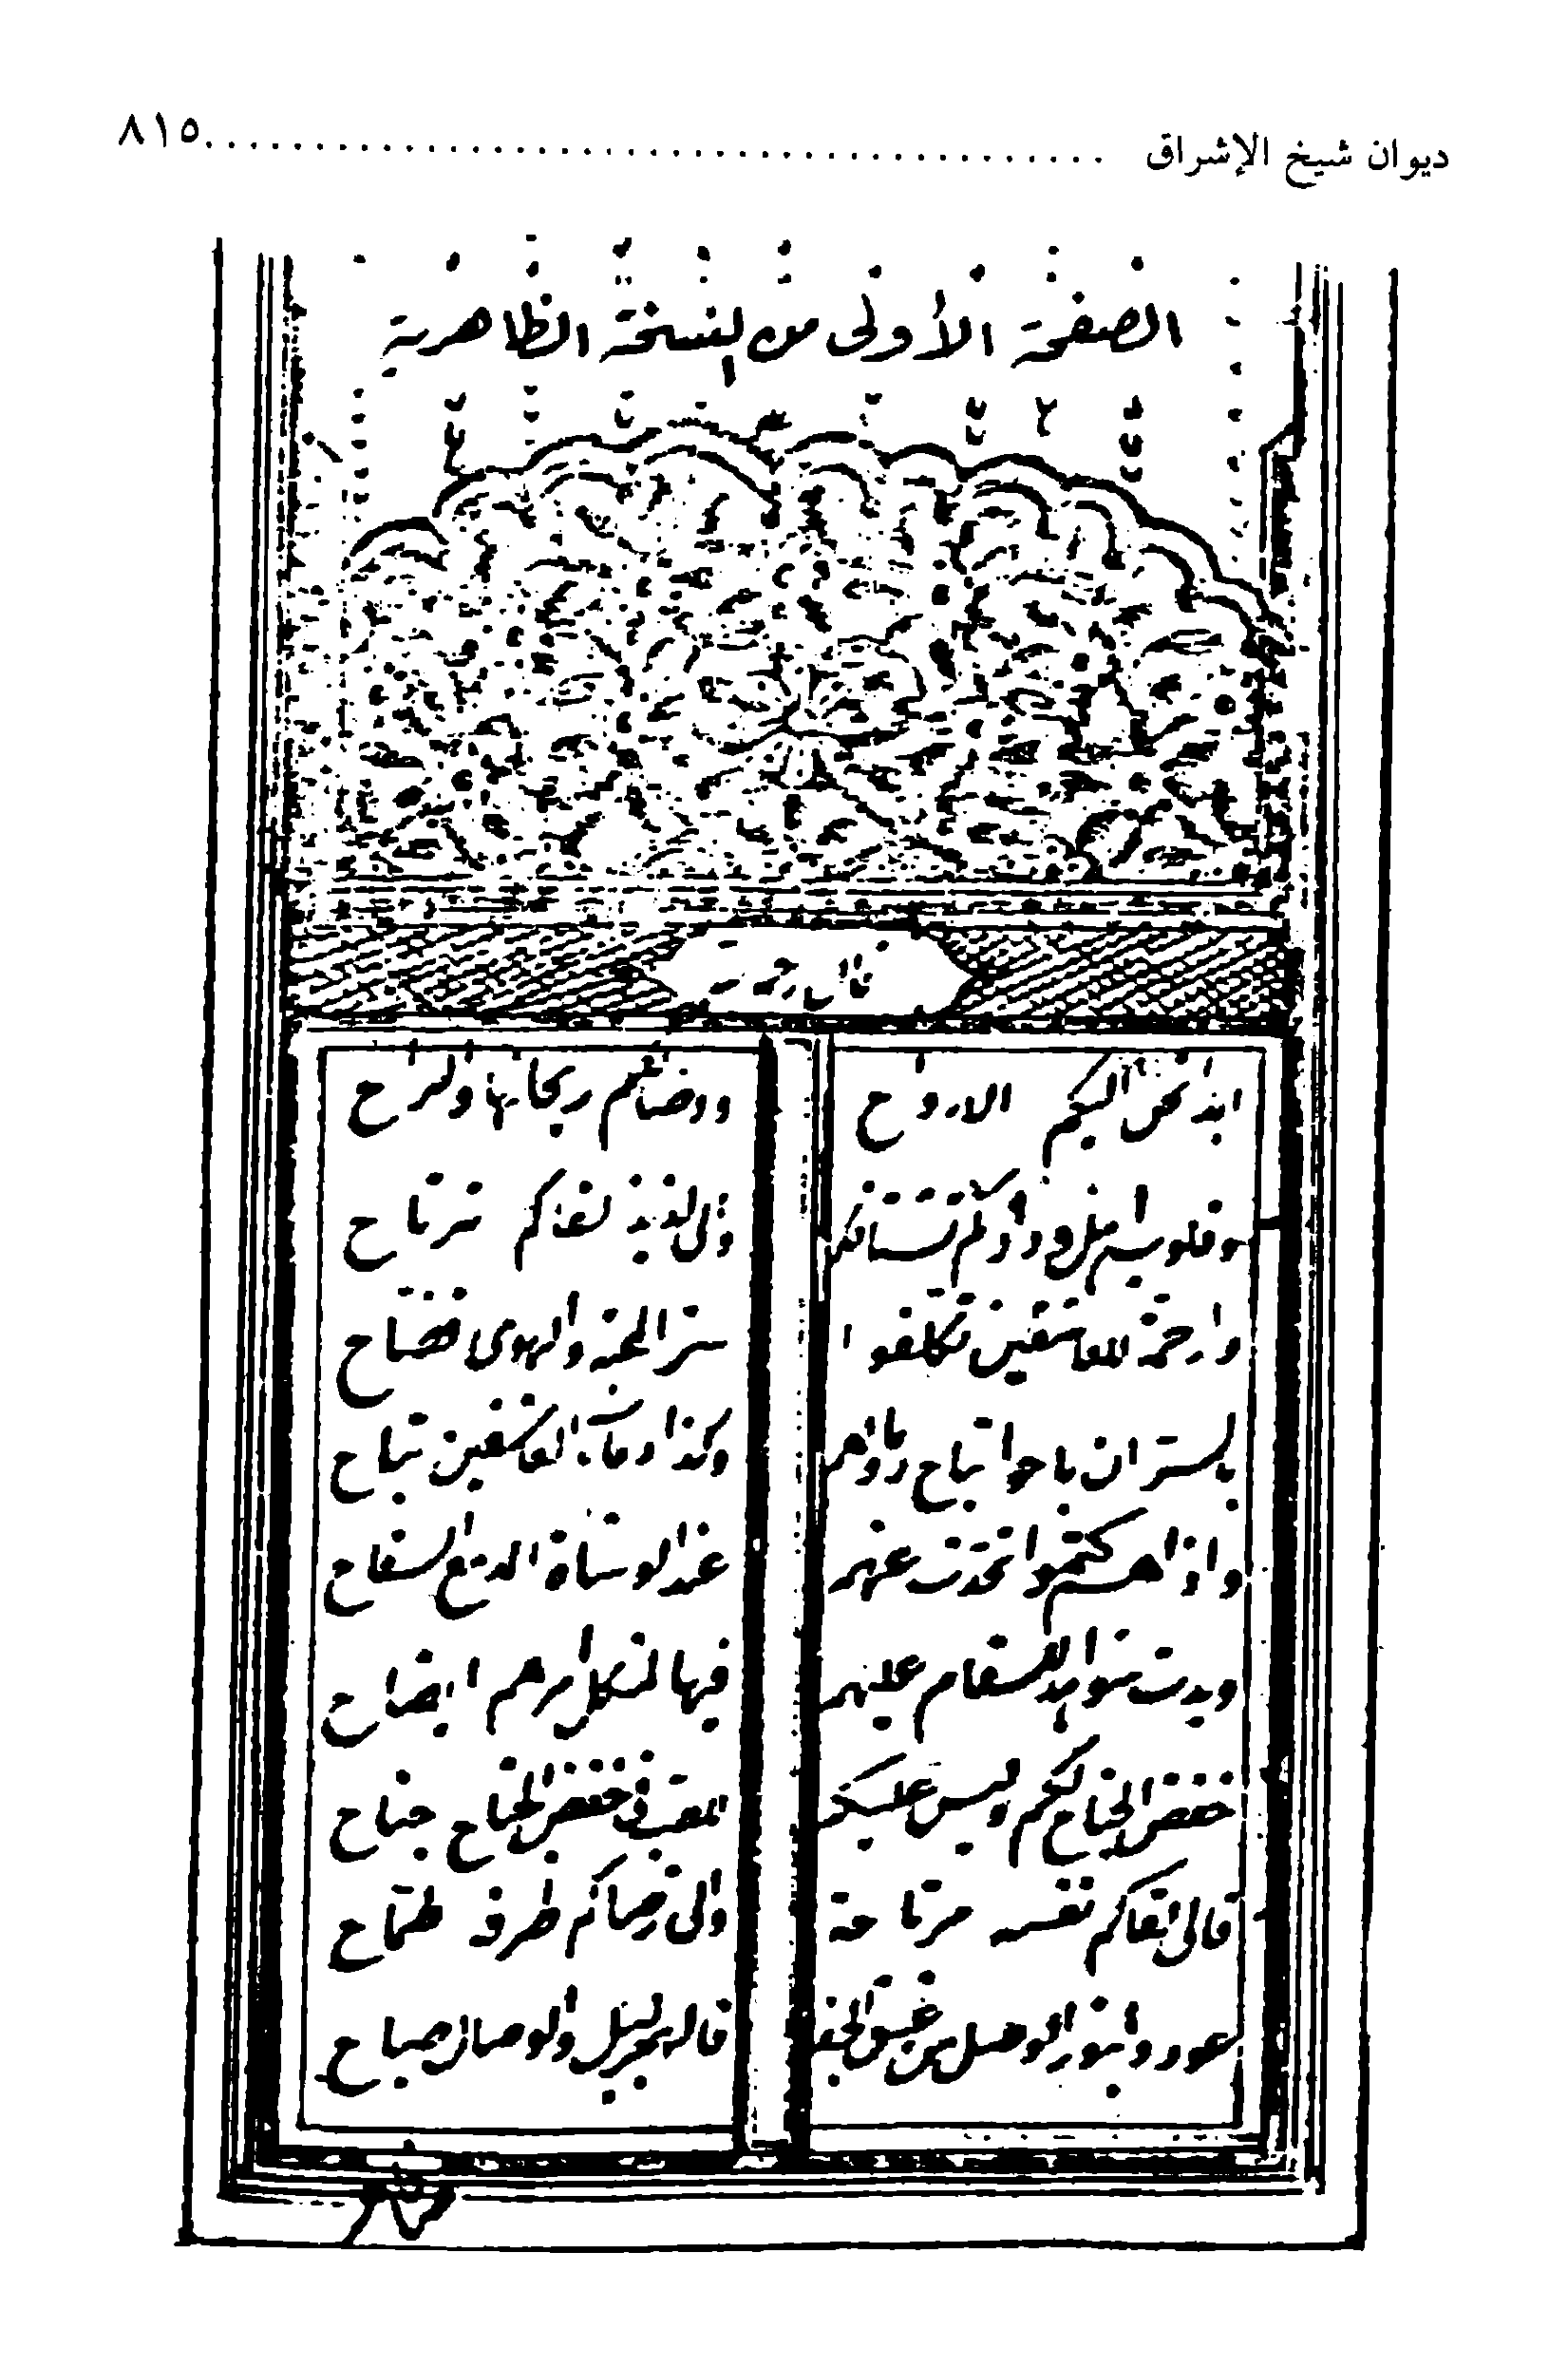 ديوان شيخ الإشراق ........................................ ٨١٥
الصفحة الأولى من النسخة الظاهرية
قال رحمه
ابدا تحن اليكم الارواح ووصالكم ريحانها والراح
وقلوب اهل ودادكم تشتاقكم والى لذيذ لقائكم ترتاح
وارحمة للعاشقين تكلفوا ستر المحبة والهوى فضاح
بالستر ان باحوا تباح دماؤهم وكذا دماء العاشقين تباح
واذا هم كتموا تحدث عنهم عند الوشاة المدمع السفاح
وبدت شواهد للسقام عليهم فيها لمشكل امرهم ايضاح
خفض الجناح لكم وليس عليكم للصب في خفض الجناح جناح
فالى لقاكم نفسه مرتاحة والى رضاكم طرفه طماح
عودوا بنور الوصل من غسق الجفا فالهجر ليل والوصال صباح